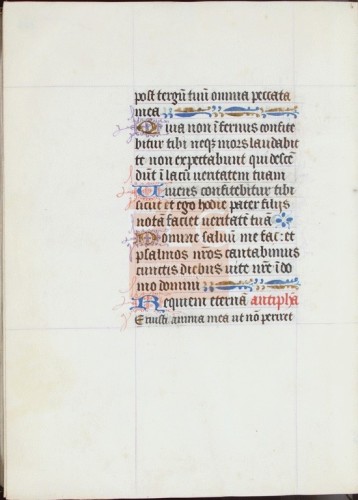 post tergū tuū omnia peccata
mea
Quia non īfernus confite
bitur tibi neqꝫ mors laudabit
te non expectabunt qui descē
dūt ī lacū ueritatem tuam
Uiuens confitebitur tibi
sicut et ego hodie pater filijs
notā faciet ueritatē tuā
Domine saluū me fac: et
psalmos nr̄os cantabimus
cunctis diebus uite nr̄e ī do
mo domini
Requiem eternā antipha
Eruisti anima mea ut nō periret